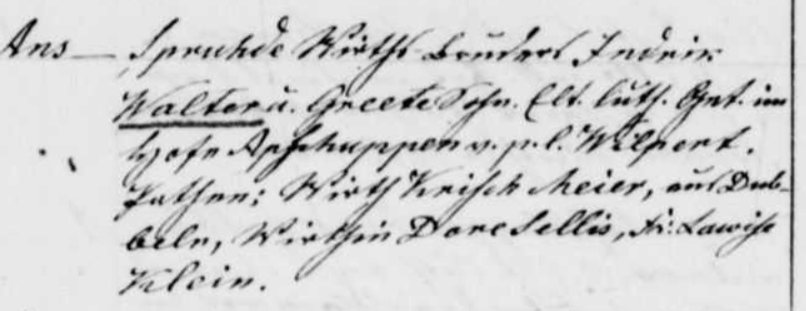 Ans — Spruhde Wirths Bruders Indrik
Walter u. Greete Sohn. Elt. luth. Get. im
Hofe Apschuppen v. p. l. Wilpert.
Pathen: Wirth Krisch Meier, aus Dub-
beln, Wirthin Dore Sellis, Lawise
Klein.